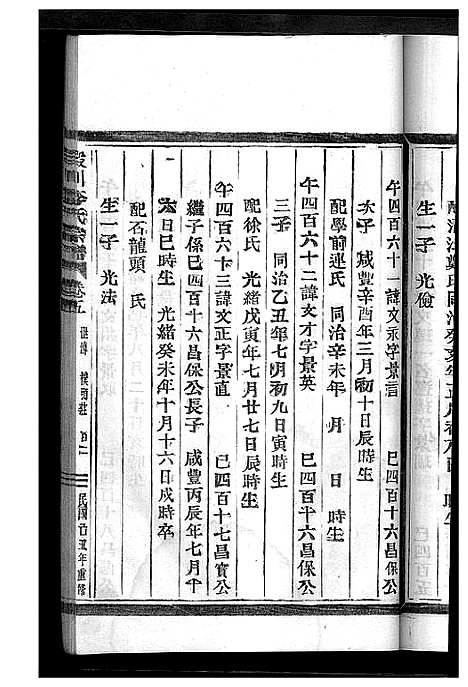 生一子 光儉
午四百六十一諱文永字景言 巳四百十六昌保公
次子 咸豐辛酉年三月初十日辰時生
配學前連氏 同治辛未年 月 日 時生
午四百六十二諱文才字景英 巳四百十六昌保公
三子 同治乙丑年七月初九日寅時生
配徐氏 光緒戊寅年七月廿七日辰時生
午四百六十三諱文正字景直 巳四百十七昌實公
繼子係巳四百十六昌保公長子 咸豐丙辰年七月十
六日巳時生 光緒癸未年十月十六日戌時卒
配石龍頭 氏
生一子 光法
氏宗譜 卷五
民國 丑年重修